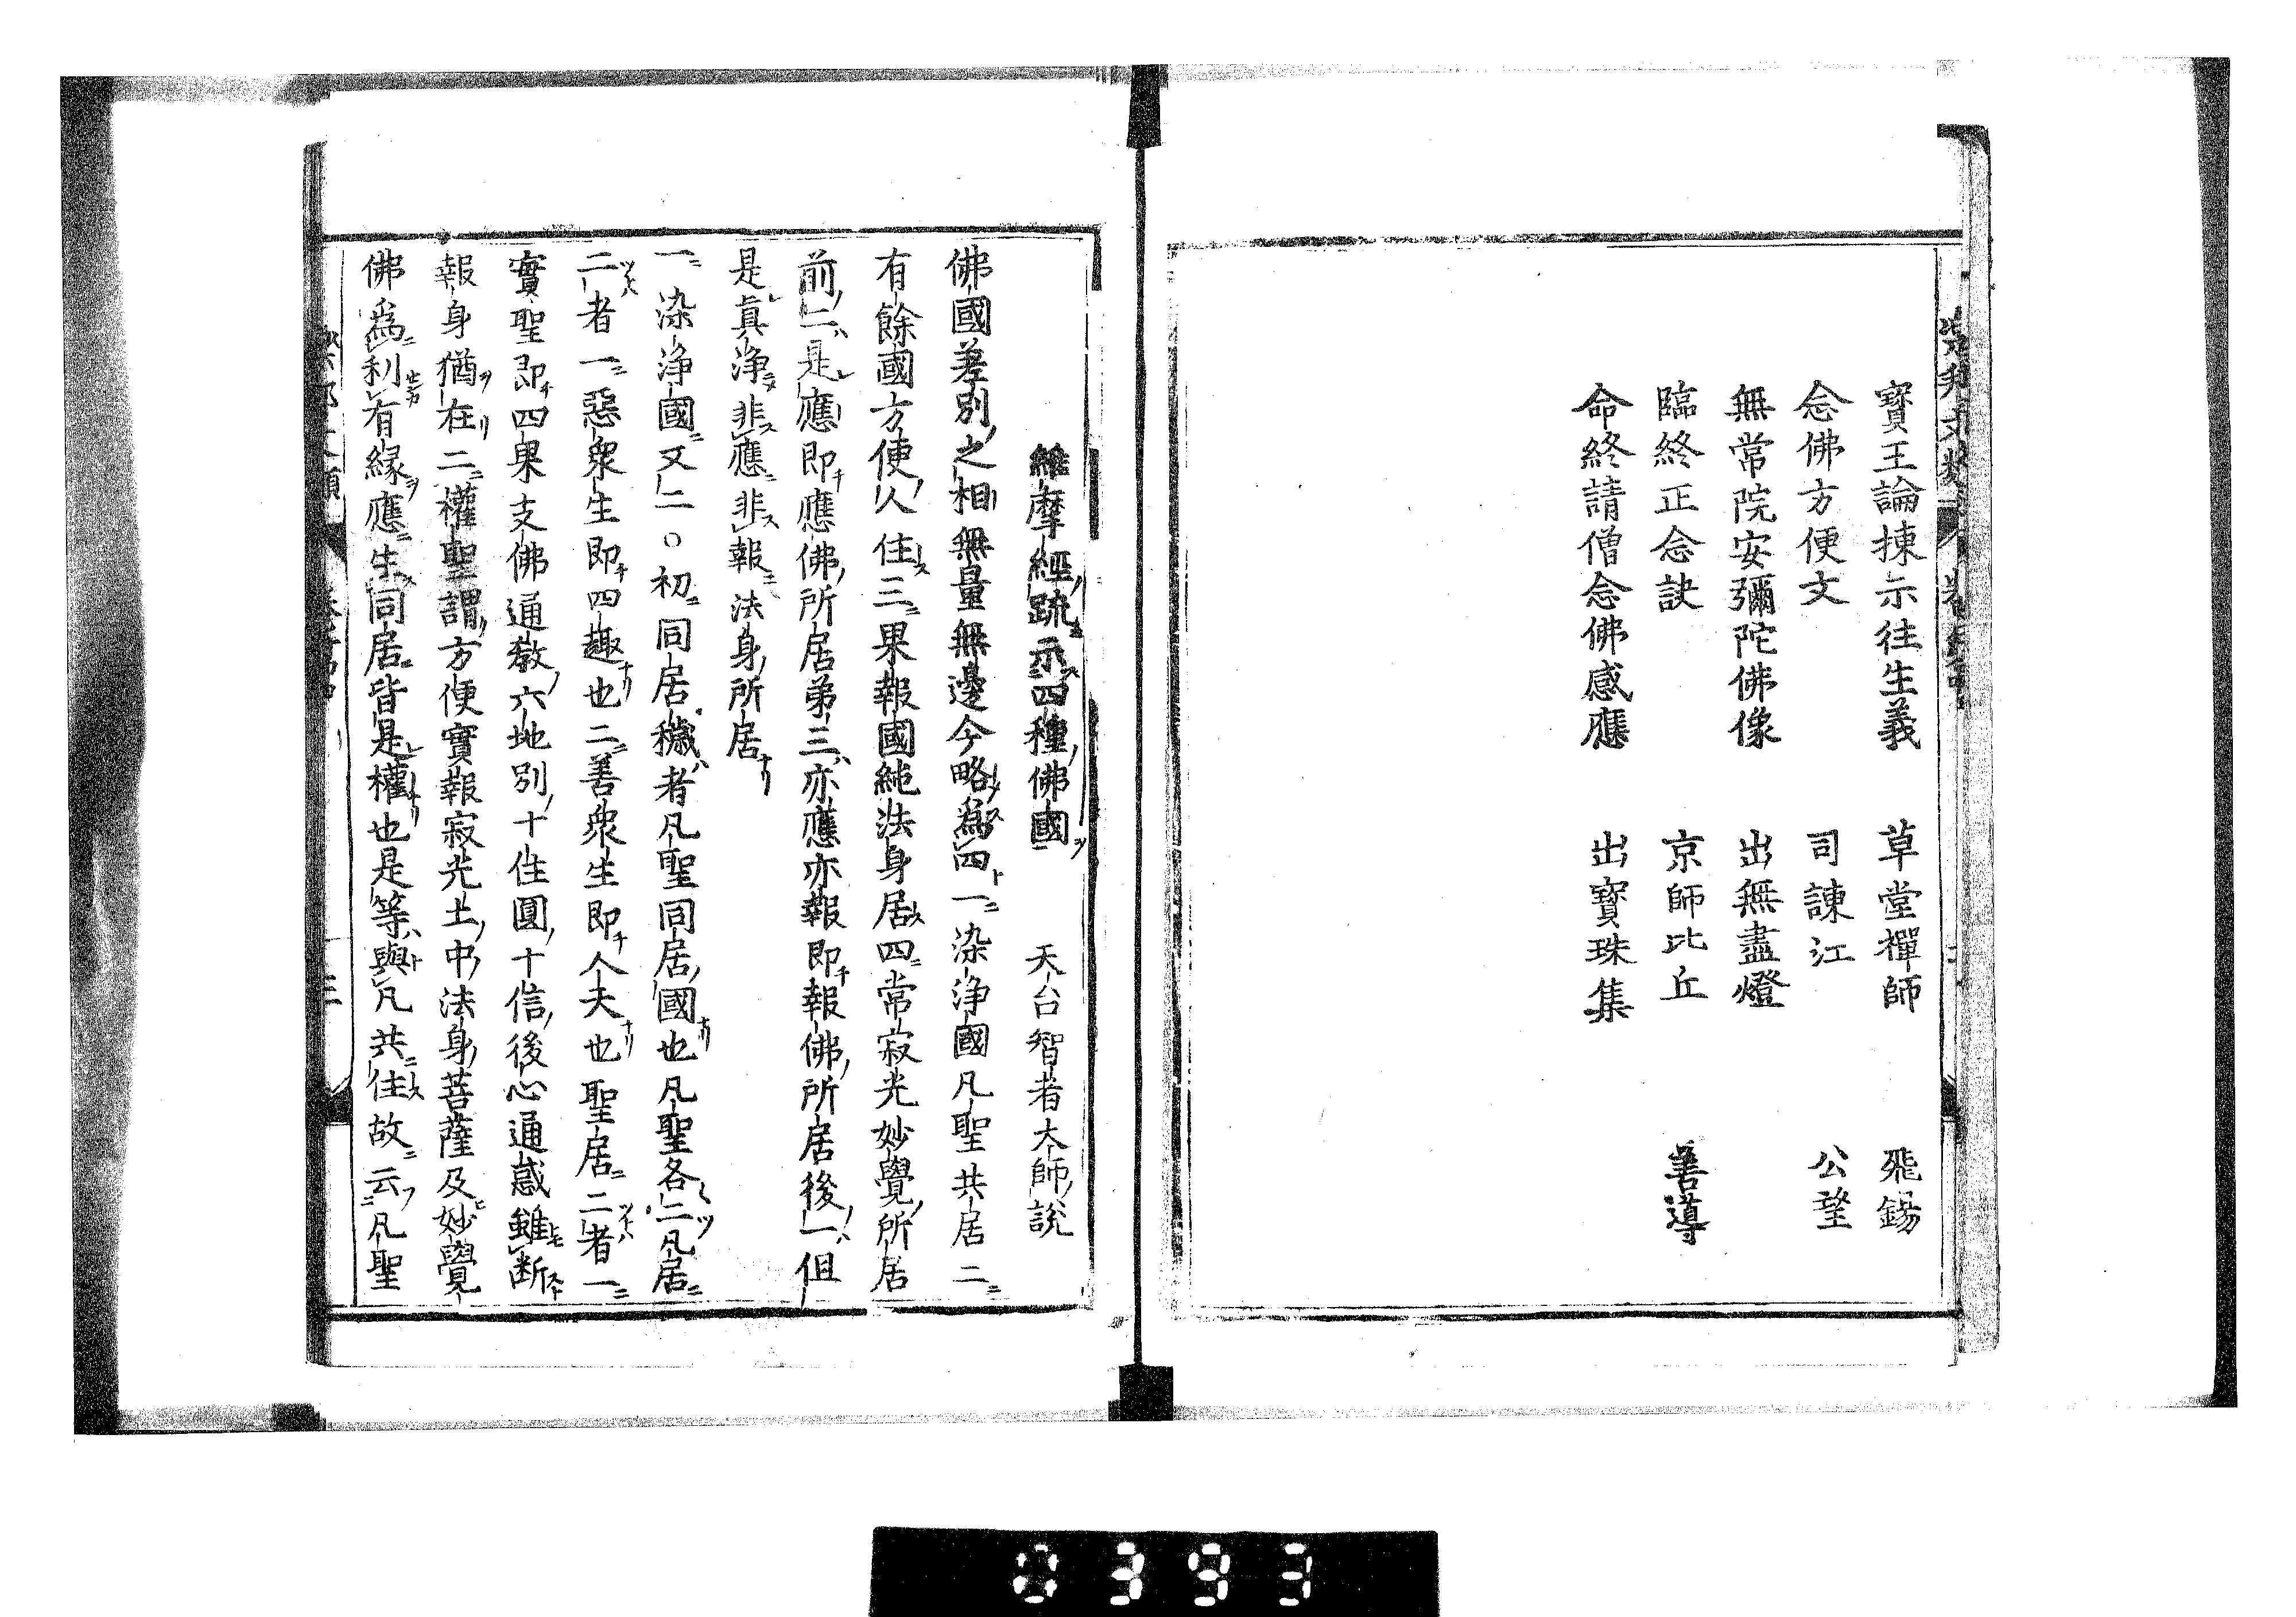 寶王論揀示往生義　草堂禪師　飛錫
念佛方便文　司諫江　公望
無常院安彌陀佛像　出無盡燈
臨終正念訣　京師比丘　善導
命終請僧念佛感應　出寶珠集
維摩經疏示四種佛國　天台智者大師說
佛國差別之相無量無邊今略為四一染淨國凡聖共居二
有餘國方便人住三果報國純法身居四常寂光妙覺所居
前二是應即應佛所居第三亦應亦報即報佛所居後一但
是真淨非應非報法身所居
一染淨國又二○初同居穢者凡聖同居國也凡聖各二凡居
二者一惡衆生即四趣也二善衆生即人天也聖居二者一
實聖即四果支佛通教六地別十住圓十信後心通惑雖断
報身猶在二權聖謂方便實報寂光土中法身菩薩及妙覺
佛為利有緣應生同居皆是權也是等與凡共住故云凡聖
0393